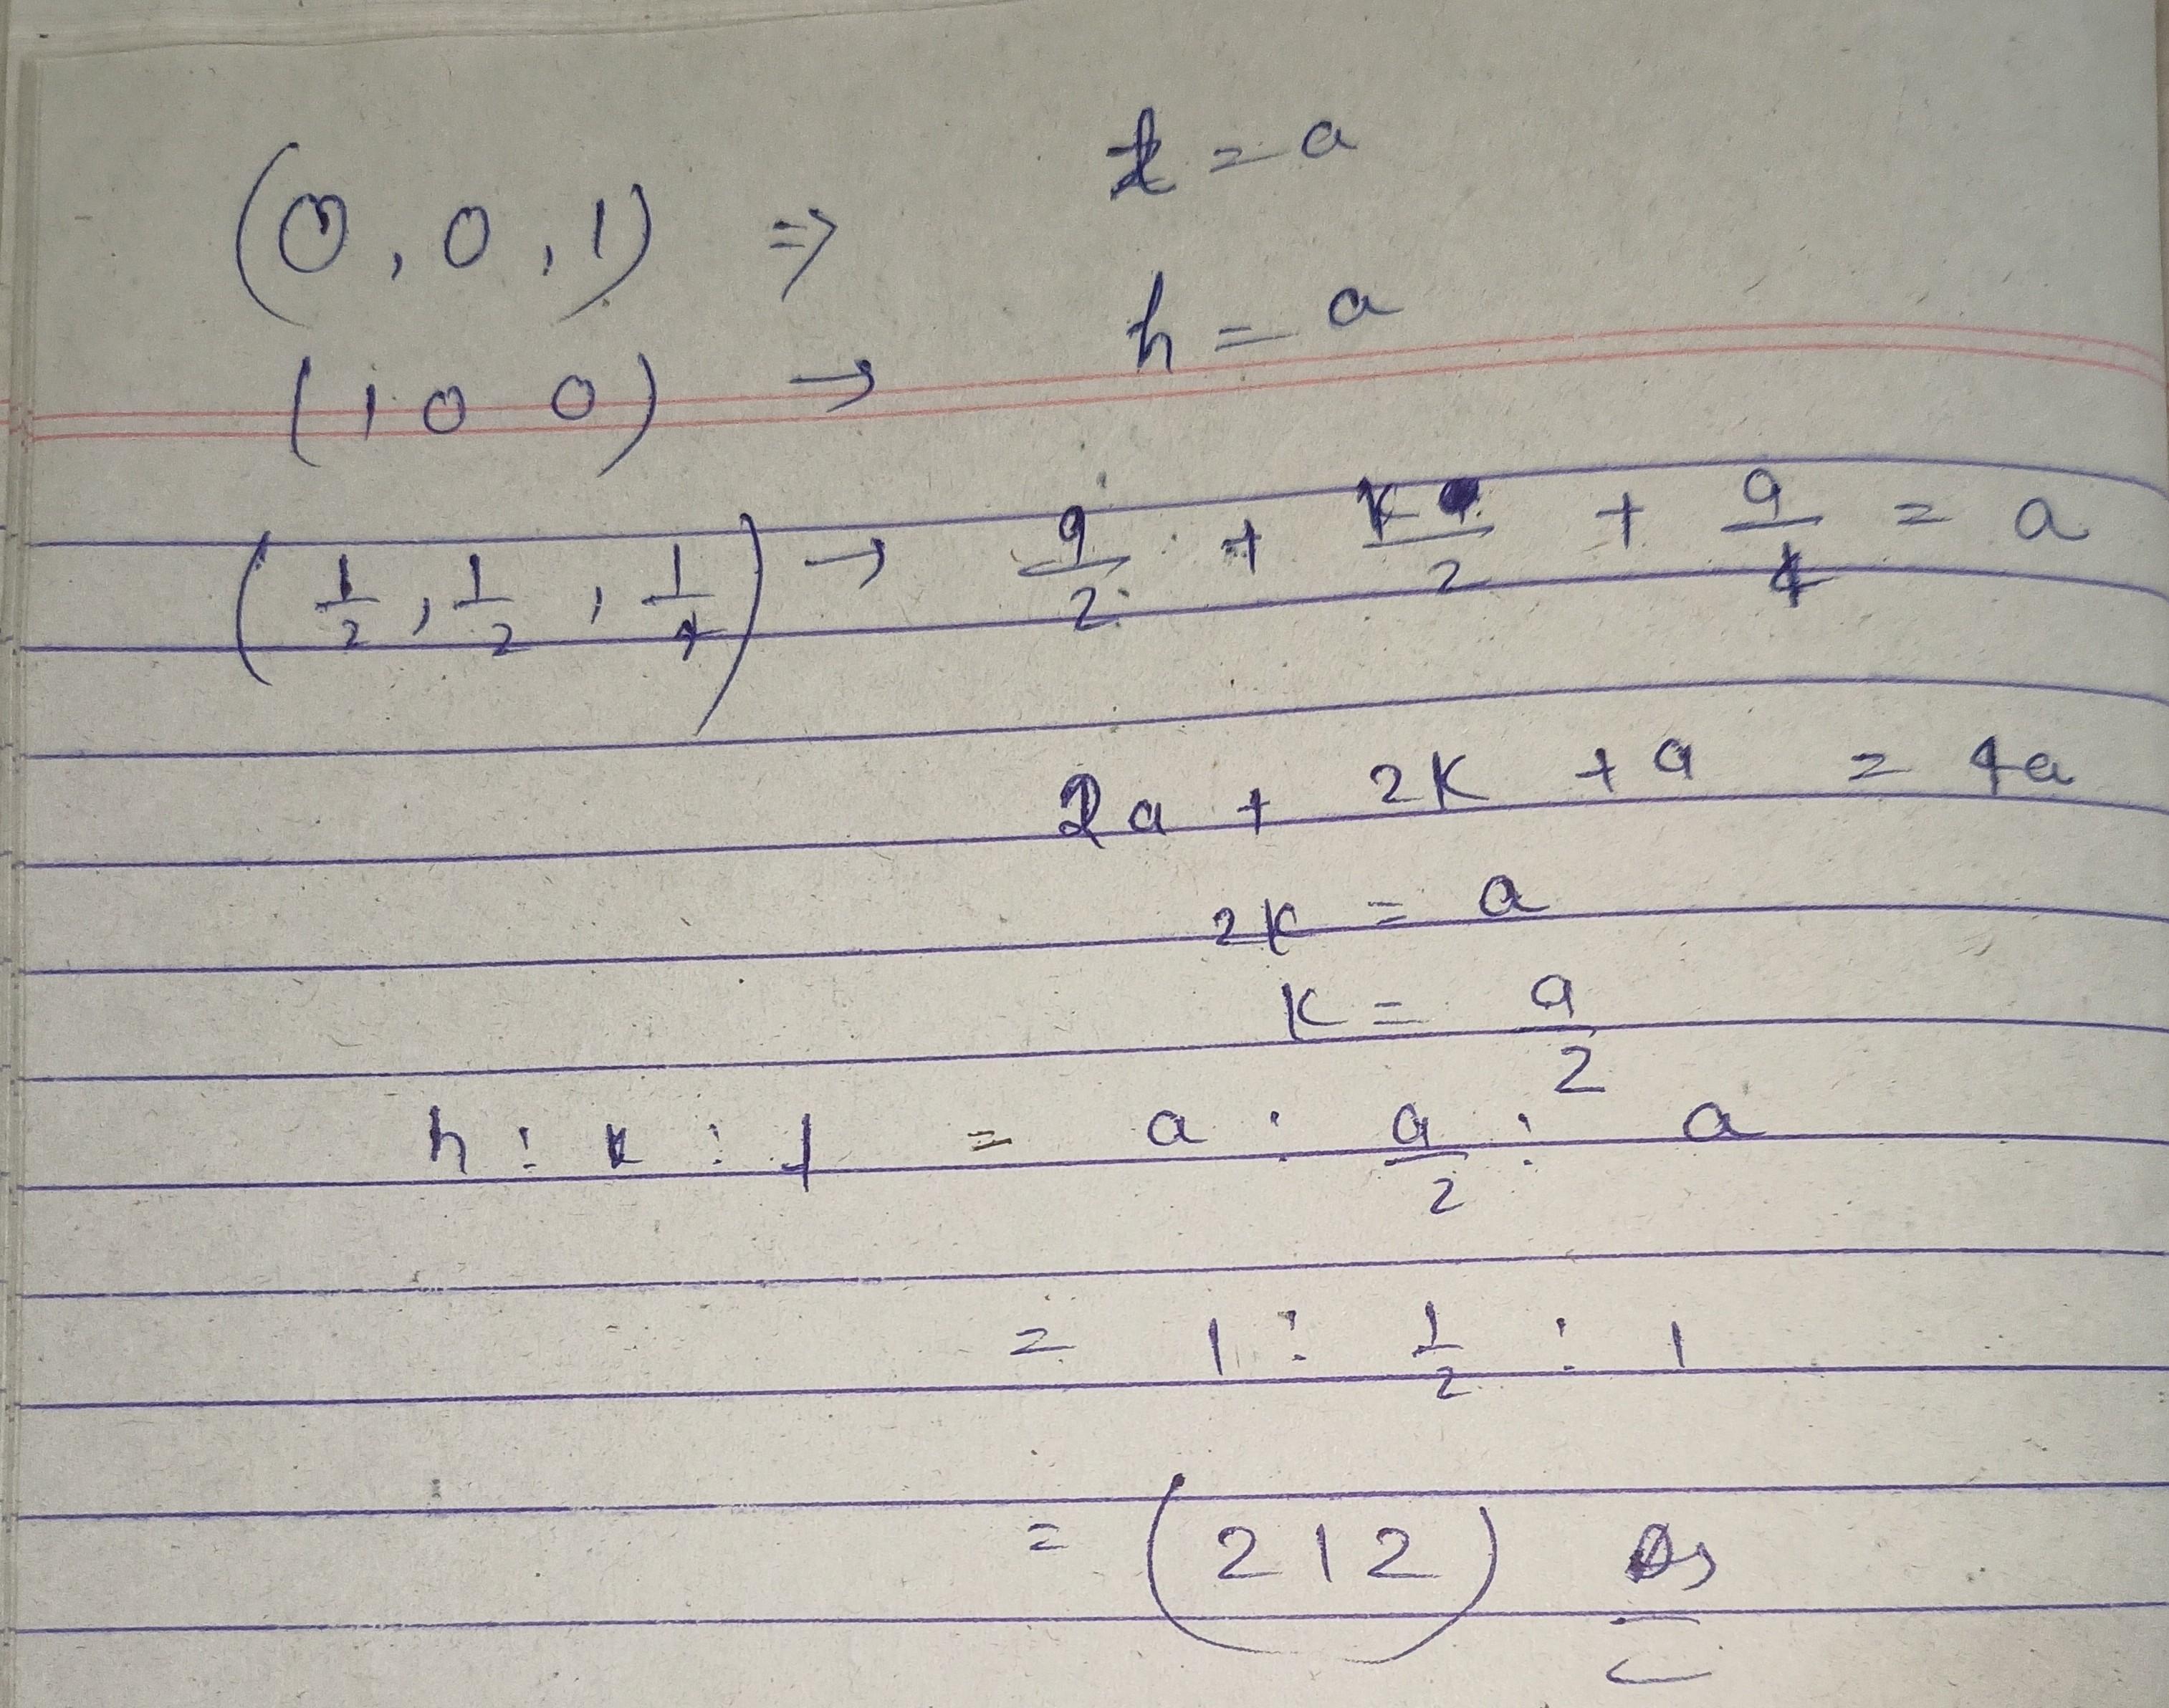 l = a
(0, 0, 1) ⇒
h = a
(1 0 0) →
(1/2, 1/2, 1/4) → a/2 + k/2 + a/4 = a
2a + 2k + a = 4a
2k = a
k = a/2
h : k : l = a : a/2 : a
= 1 : 1/2 : 1
= (2 1 2)